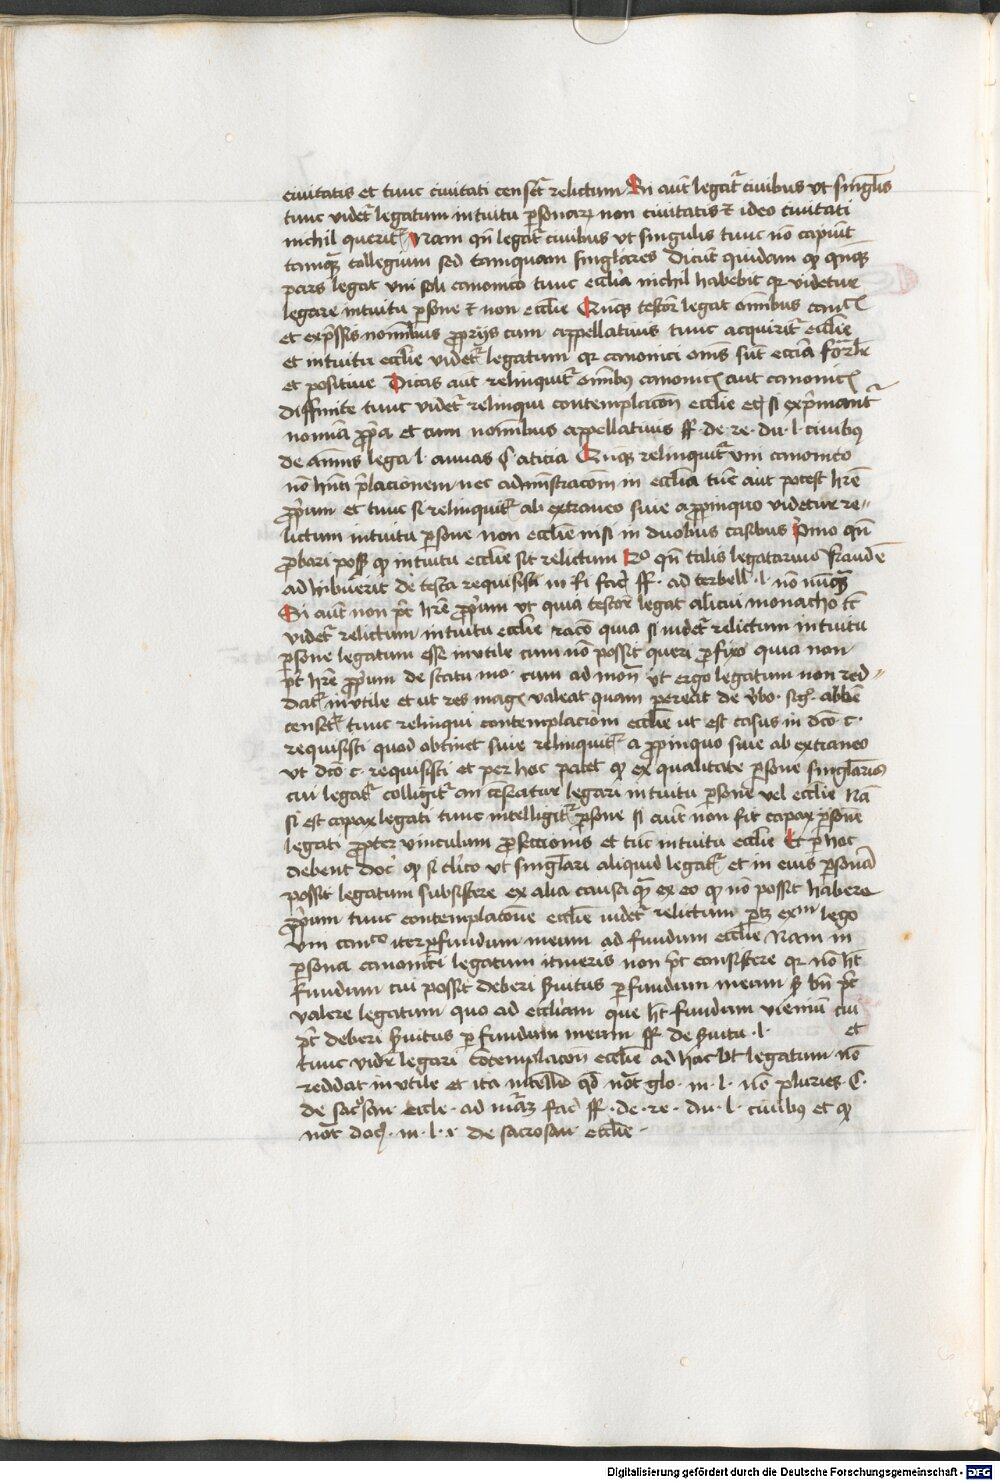 ciuitatis et tunc ciuitati censet̄ relictum Si aūt legat̄ ciuibus vt singlis
tunc videt̄ legatum intuitu ꝑsonaꝝ non ciuitatis et ideo ciuitati
nichil querit̄ Nam qn̄ legat̄ ciuibus vt singulis tunc nō capiūt
tamqȝ collegium sed tamquam singlares Dicūt quidam ꝙ qn̄qȝ
pars legat vni soli canonico tunc eccl̄ia nichil habebit qr videtur
legare intuitu ꝑsone et non eccl̄ie Qn̄qȝ testor legat om̄ibus can
et exp̄ssis nominibus ꝓprijs cum appellatiuis tunc acquirit̄ eccl̄ie
et intuitu eccl̄ie videt̄ legatum qr canonici om̄s sūt eccl̄ia
et positiue Dicas aūt relinquit̄ om̄ibꝰ canonic̄ aut canonic̄
diffinite tunc videt̄ relinqui contemplacōn eccl̄ie etc̄ si exp̄mant̄
nomīa ꝓp̄a et cum nomībus appellatiuis ff. de. re. du. l. ciuibꝰ
de annis lega. l. annas C Qn̄qȝ relinquit̄ vni canonico
nō hn̄ti p̄lacionem nec adminstracōm in eccl̄ia tūc aut potest hr̄e
ꝓp̄um et tunc si relinquit̄ ab extraneo siue a ꝓpinquo videtur re-
lictum intuitu ꝑsone non eccl̄ie nisi in duobus casibus Pmo qn̄
ꝓbari poss̄ ꝙ intuitu eccl̄ie sit relictum 2o qn̄ talis legatarius fraudē
adhibuerit de testa requisisti in fi fac̄ ff. ad terbell. l. nō nūqȝ
Si aūt non pt̄ hr̄e ꝓp̄um vt quia testor legat alicui monacho tc̄
videt̄ relictum intuitu eccl̄ie racō quia si videt̄ relictum intuitu
ꝑsone legatum esse inutile cum nō possit queri ꝓfixo quia non
pt̄ hr̄e ꝓp̄um de statu mo. cum ad mon̄ vt ergo legatum non red-
dat̄ inutile et ut res magꝭ valeat quam pereat de v̄bo. sig. abbē
censet̄ tunc relinqui contemplacioni eccl̄ie ut est casus in dc̄o c.
requisisti quod obtinet siue relinquit̄ a ꝓpinquo siue ab extraneo
vt dc̄o c. requisisti et per hoc patet ꝙ ex qualitate ꝑsone singlarius
cui legat̄ colligit̄ an cēseatur legari intuitu ꝑsone vel eccl̄ie Nā
si est capax legati tunc intelligit̄ ꝑsone si aūt non sit capax ꝑsone
legati ꝓpter vinculum ꝓfessionis et tūc intuitu eccl̄ie Et ꝑ hoc
debent doc̄ ꝙ si cl̄ico vt singlari aliquid legat̄ et in eius ꝑsonā
possit legatum subsistere ex alia causa qȝ ex eo ꝙ nō possit habere
ꝓp̄um tunc contemplatione eccl̄ie videt̄ relictum ptȝ exm lego
vni canco iter ꝑ fundum meum ad fundum eccl̄ie Nam in
ꝑsona canonici legatum itineris non pt̄ consistere qr nō ht̄
fundum cui possit deberi s̄uitus ꝑ fundum meum s̄ bn̄ pt̄
valere legatum quo ad eccl̄iam que ht̄ fundum vicinū cui
pt̄ deberi s̄uitus ꝑ fundum meum ff de s̄uitu. l. et
tunc vidr̄ legari cōtemplacon eccl̄ie ad hac vt legatum nō
reddat̄ inutile et ita intell qd̄ not̄ glo. in. l. nō plures. C.
de sacrosan. eccle. ad mām fac̄ ff. de. re. du. l. ciuibꝰ et ꝙ
not̄ doc̄. in. l. 1. de sacrosan eccl̄ie.
Digitalisierung gefördert durch die Deutsche Forschungsgemeinschaft - DFG